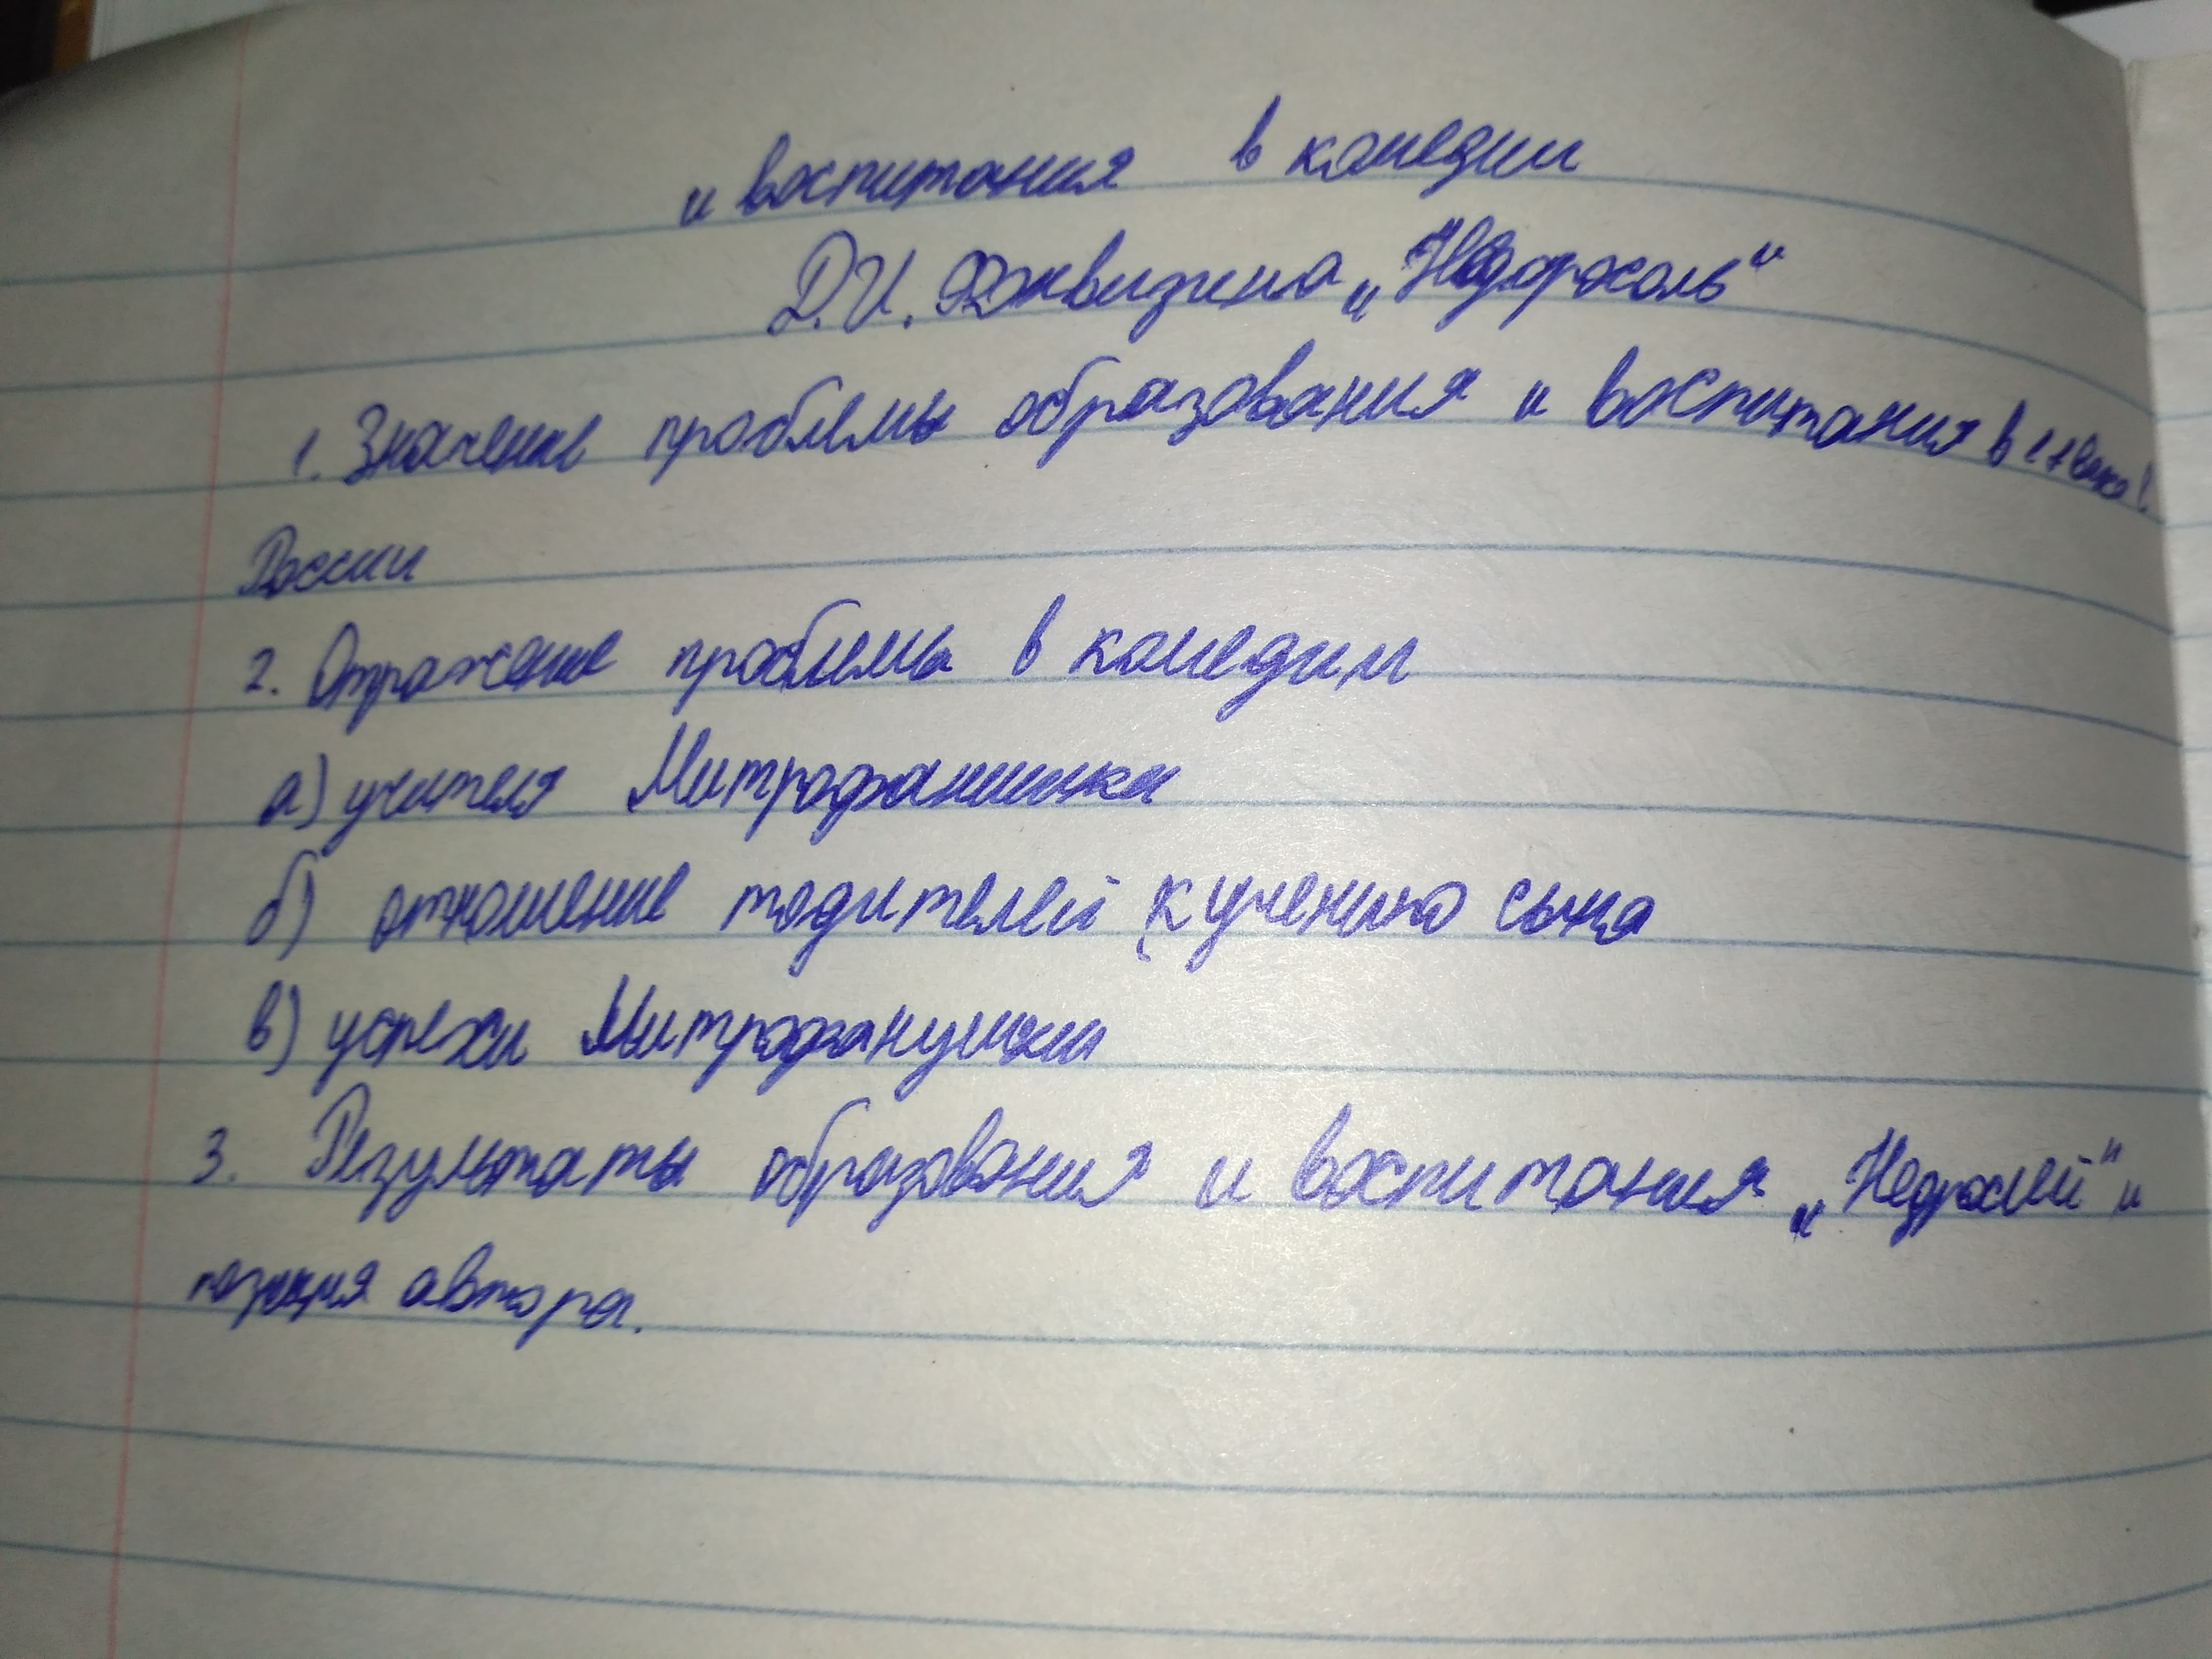 и воспитания в комедии
Д.И. Фонвизина „Недоросль"
1. Значение проблемы образования и воспитания в
России
2. Отражение проблемы в комедии
а) учителя
б) отношение тодителей к учению сына
в) успехи Митрофанушки
3. Результаты образования и воспитания „Недрослей" и
позиция автора.